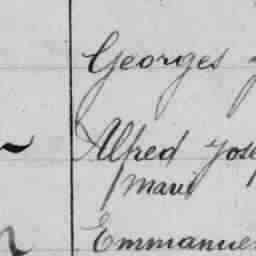 Georges
Alfred Jose
Marie
Emmanue